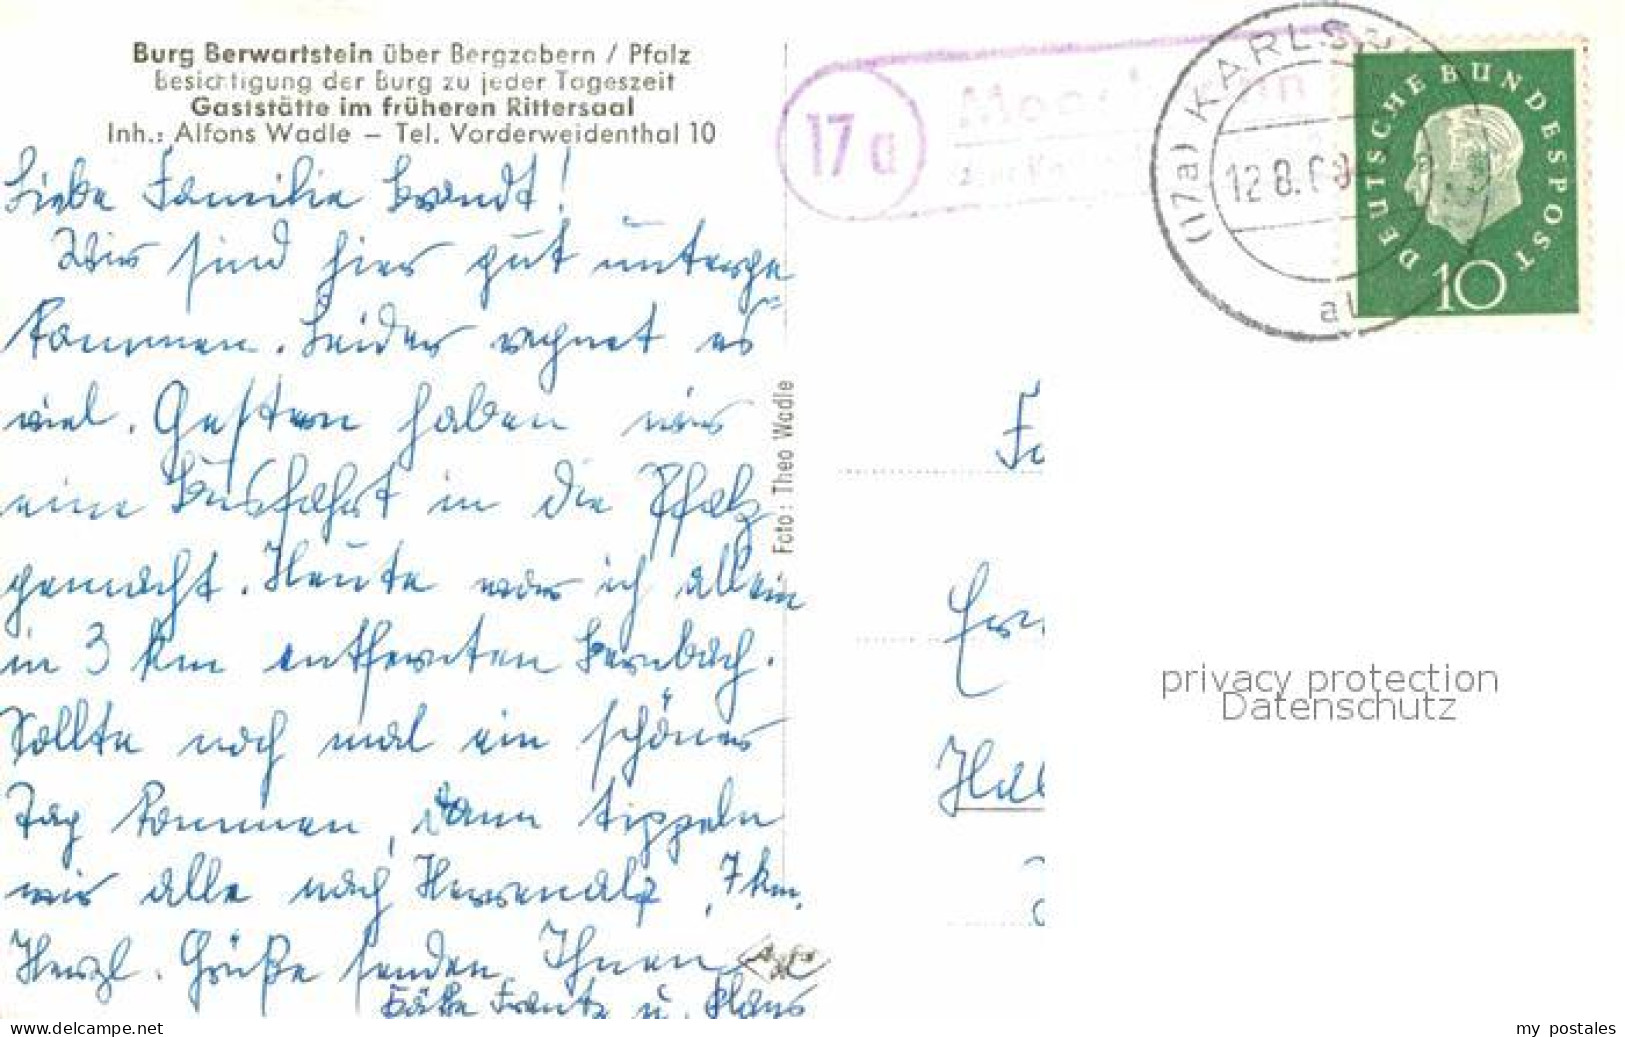 Burg Berwartstein über Bergzabern / Pfalz
Besichtigung der Burg zu jeder Tageszeit
Gaststätte im früheren Rittersaal
Inh.: Alfons Wadle – Tel. Vorderweidenthal 10
Liebe Familie Brandt!
Wir sind hier gut unterge
kommen. Leider regnet es
viel. Gestern haben wir
eine Busfahrt in die Pfalz
gemacht. Heute war ich allein
in 3 km entfernten Bernbach.
Sollte noch mal ein schöner
Tag kommen, dann tippeln
wir alle nach Herrenalb, 7 km.
Herzl. Grüße senden Ihnen
Käthe Frantz u. Klaus
Foto: Theo Wadle
17a
(17a) KARLS
12.8.6
al
DEUTSCHE BUNDESPOST
10
privacy protection
Datenschutz
www.delcampe.net
my postales